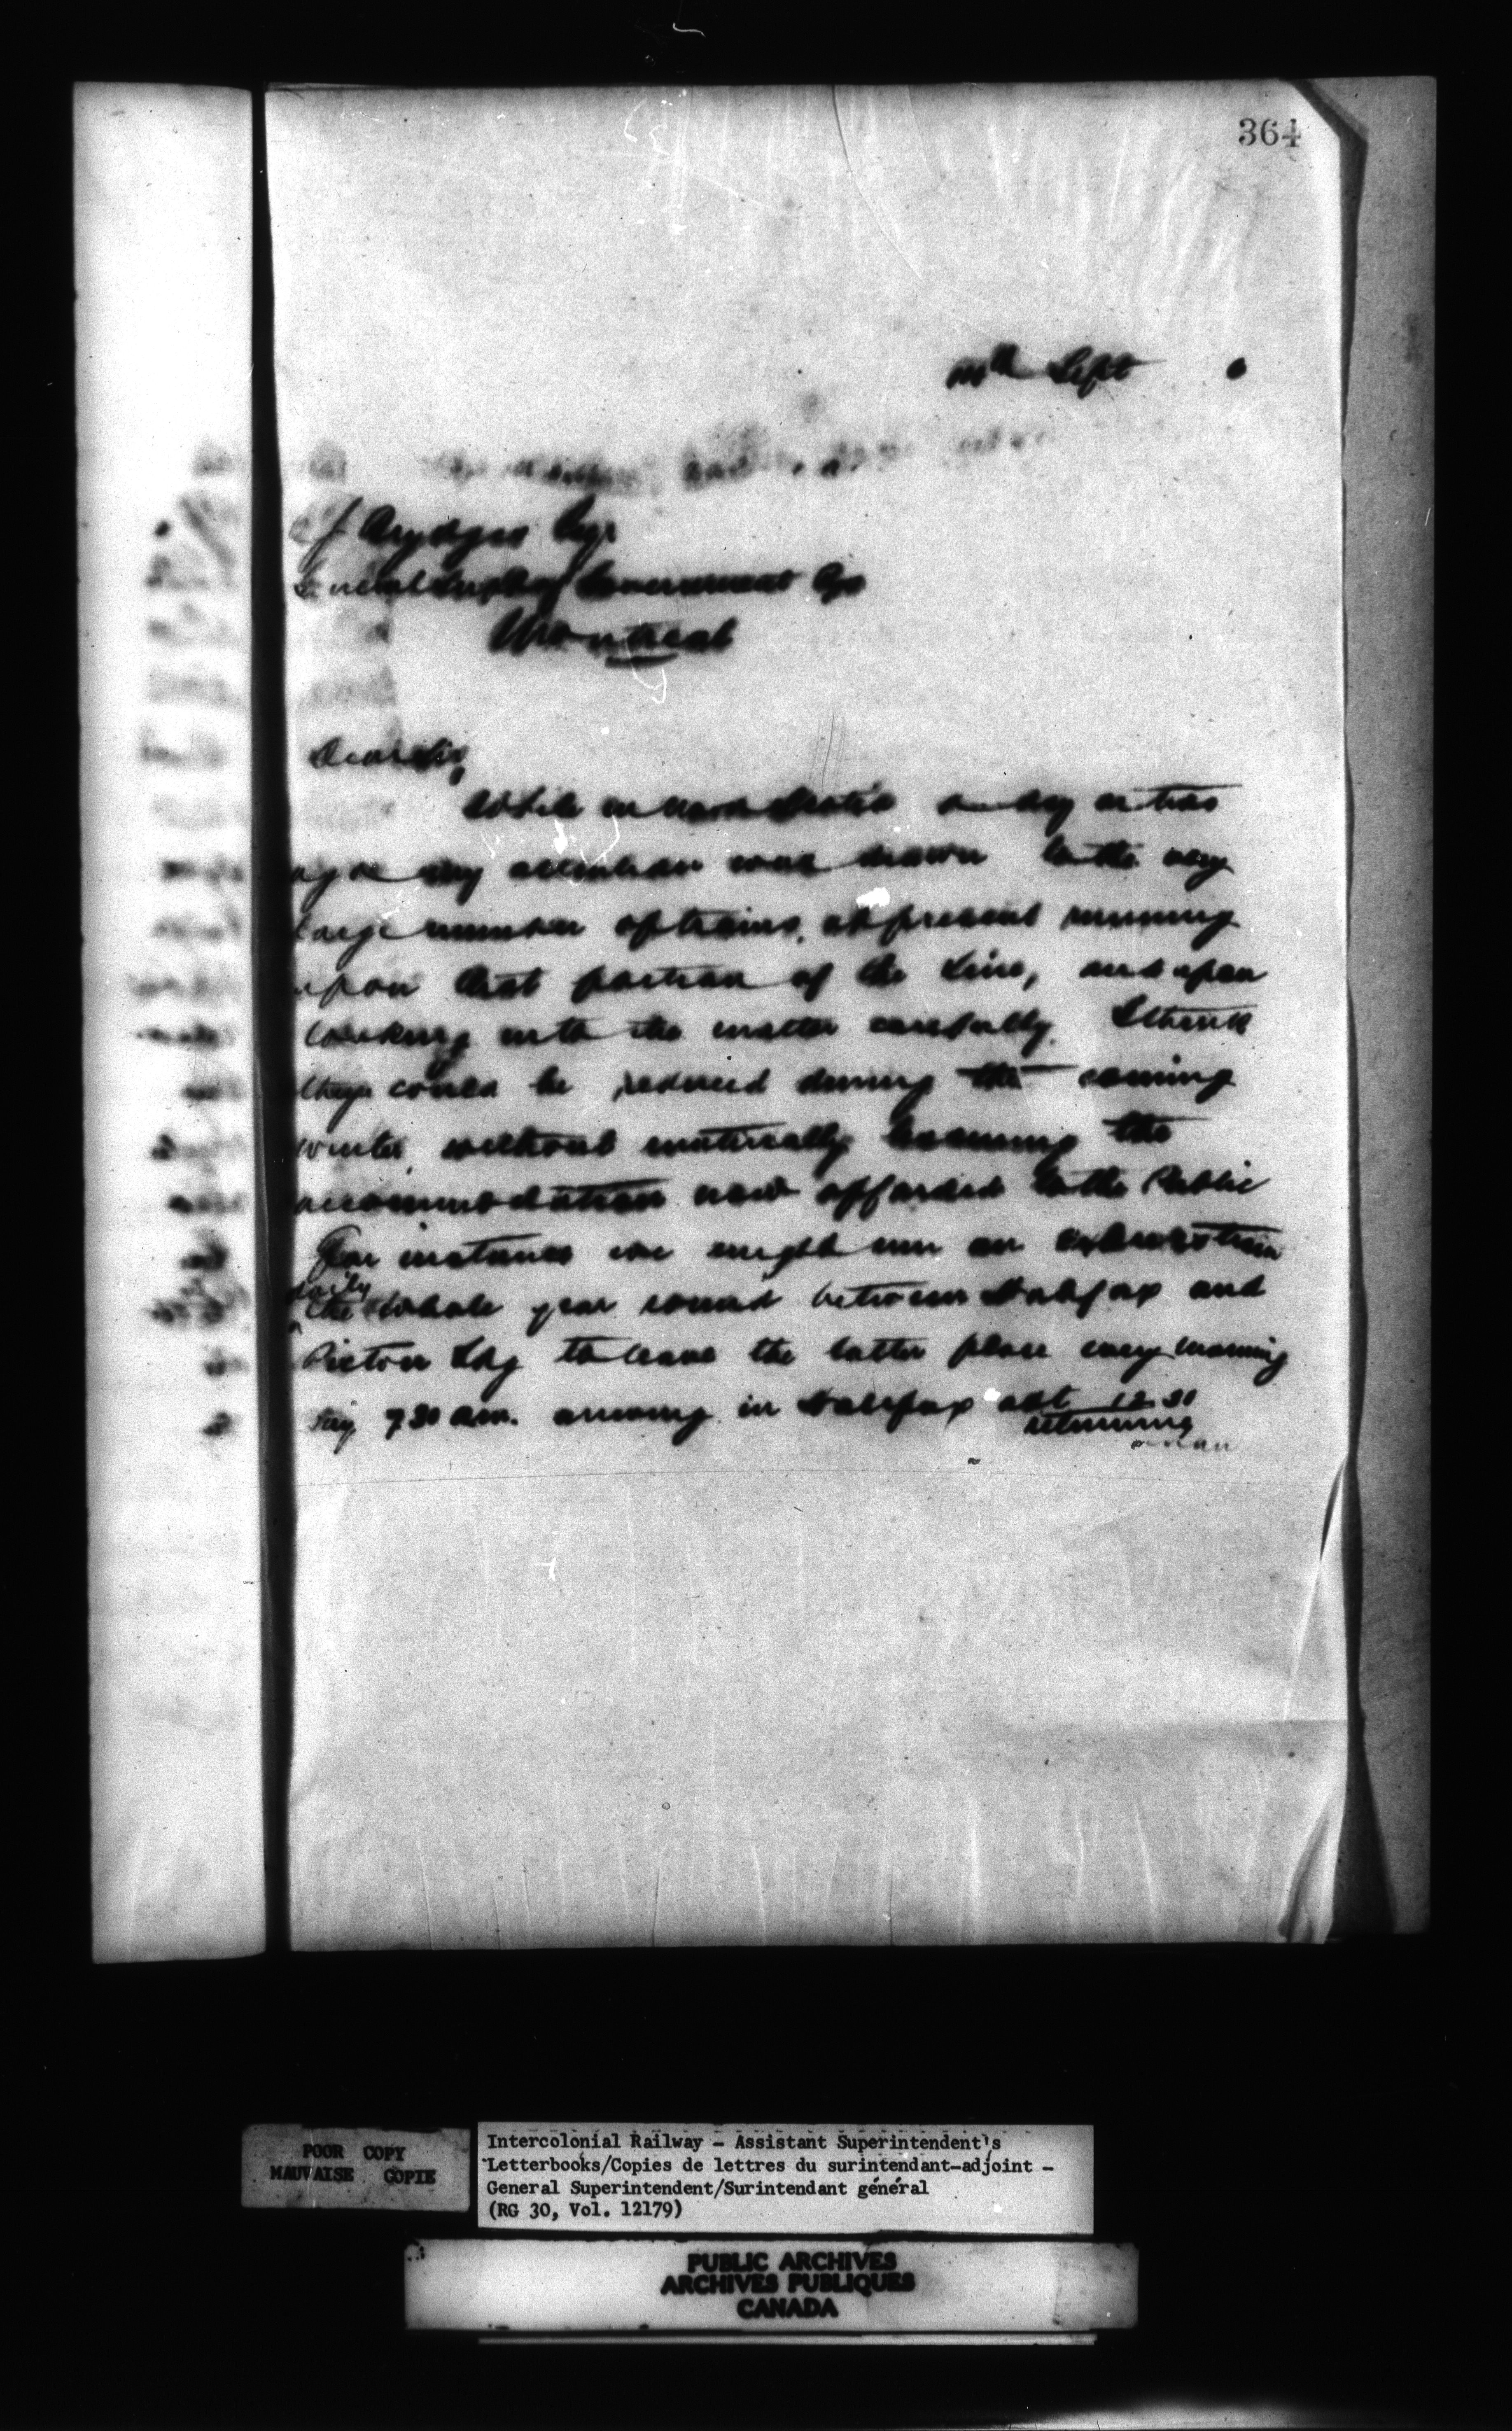 364
Sept
J Brydges Esqr
Government Rys
Montreal
Dear Sir,
While in Nova Scotia a day or two
ago my attention was drawn to the very
large number of trains, at present running
upon that portion of the line, and upon
looking into the matter carefully. I think
they could be reduced during the coming
winter, without materially lessening the
accommodation now afforded to the Public
For instance we might run an express train
daily
the whole year round between Halifax and
Pictou Ldg to leave the latter place every morning
say 7.30 am. arriving in Halifax abt 12.30
returning
POOR COPY
MAUVAISE COPIE
Intercolonial Railway - Assistant Superintendent's
Letterbooks/Copies de lettres du surintendant-adjoint -
General Superintendent/Surintendant général
(RG 30, Vol. 12179)
PUBLIC ARCHIVES
ARCHIVES PUBLIQUES
CANADA